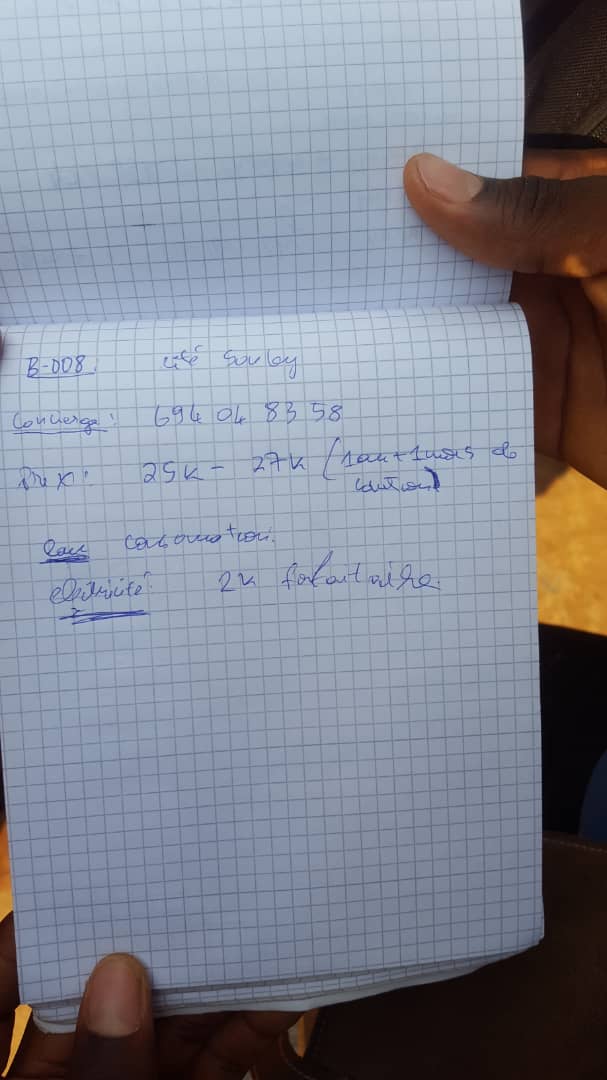 B-008: cité Souley
Concierge: 694 04 83 58
Prix: 25k - 27k (1an + 1mois de
caution)
Eau consomation.
eléctricité: 2k forfaitaire.